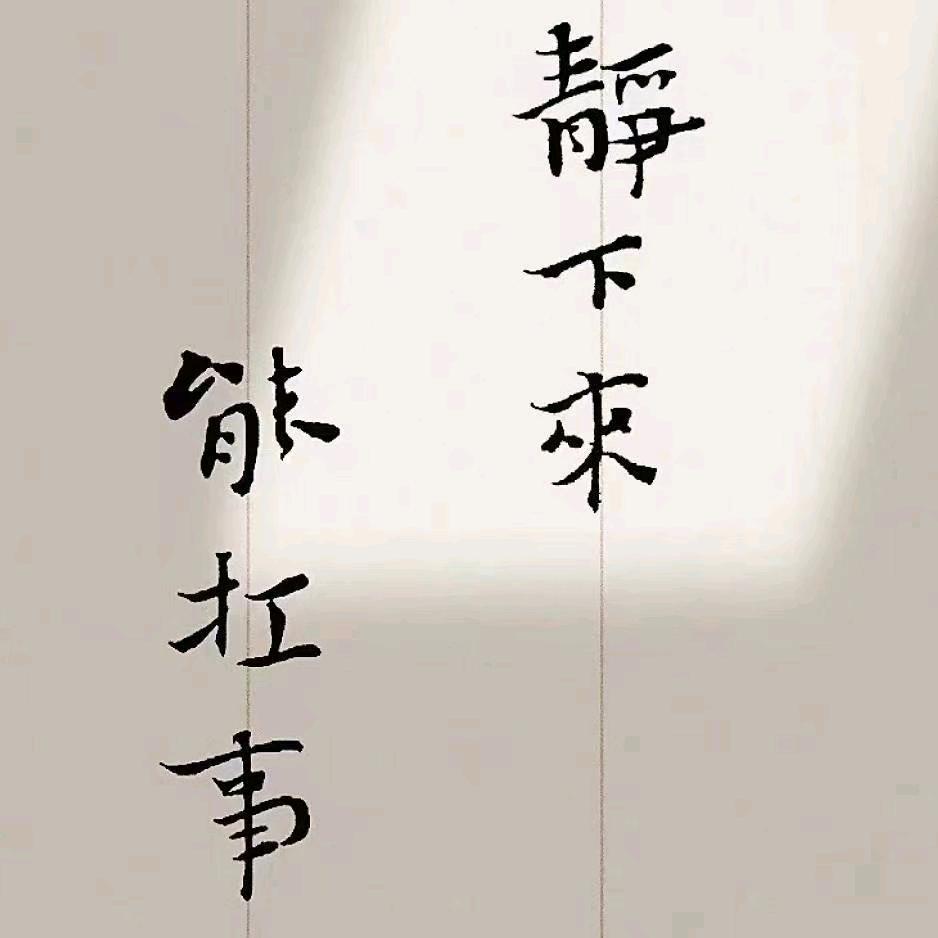 靜下來
能扛事